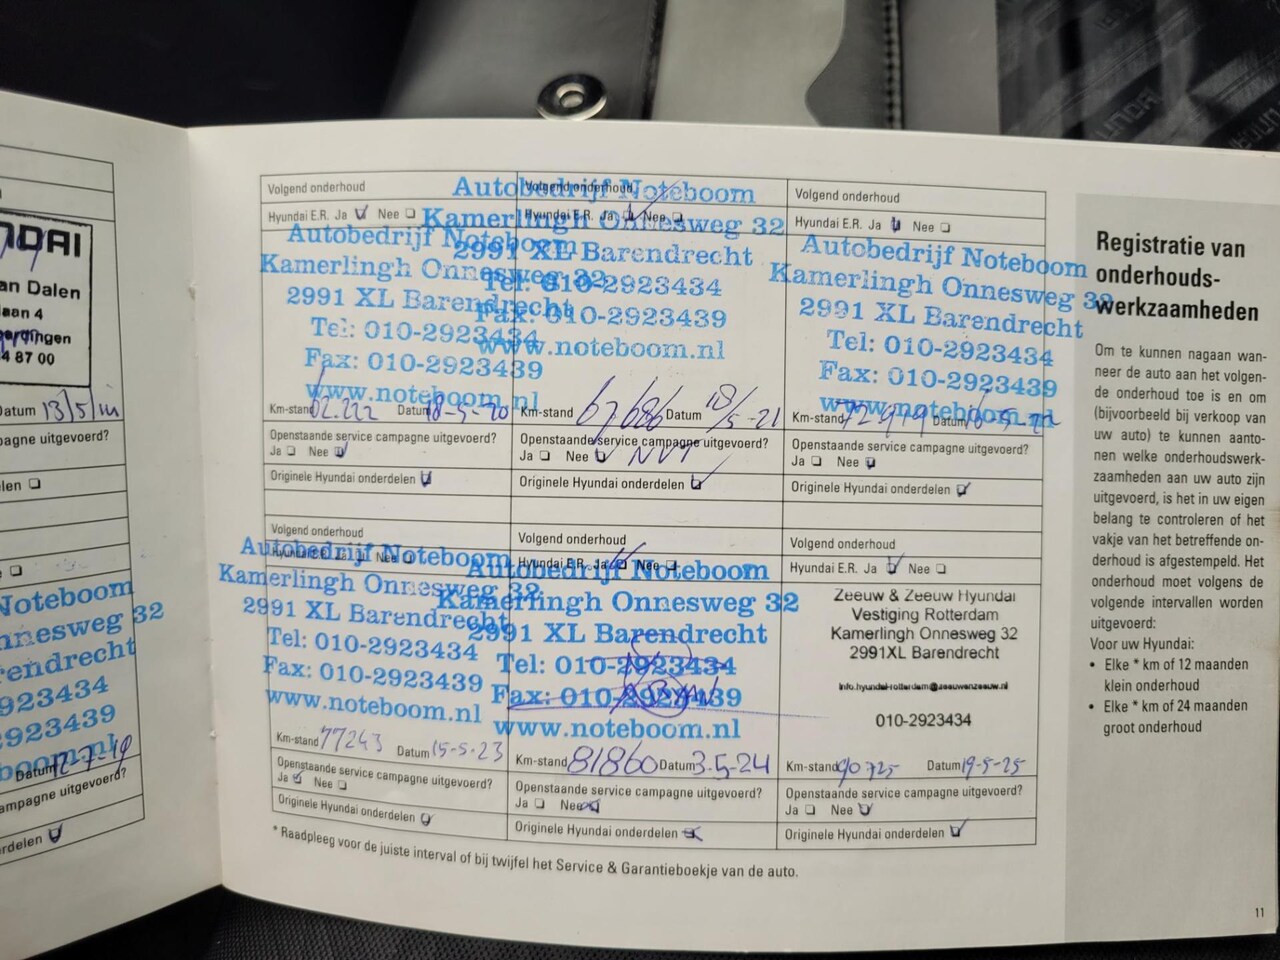 DAI
an Dalen
laan 4
4 87 00
Datum 13/5/
pagne uitgevoerd?
len
Noteboom
nnesweg 32
rendrecht
923434
923439
boom.nl
Datum 12-7-19
ampagne uitgevoerd?
rdelen
Volgend onderhoud
Hyundai E.R. Ja Nee
Autobedrijf Noteboom
Kamerlingh Onnesweg 32
2991 XL Barendrecht
Tel: 010-2923434
Fax: 010-2923439
www.noteboom.nl
Km-stand 62.222 Datum 18-5-20
Openstaande service campagne uitgevoerd?
Ja Nee
Originele Hyundai onderdelen
Volgend onderhoud
Hyundai E.R. Ja Nee
Autobedrijf Noteboom
Kamerlingh Onnesweg 32
2991 XL Barendrecht
Tel: 010-2923434
Fax: 010-2923439
www.noteboom.nl
Km-stand 67686 Datum 18/5-21
Openstaande service campagne uitgevoerd?
Ja Nee NVT
Originele Hyundai onderdelen
Volgend onderhoud
Hyundai E.R. Ja Nee
Autobedrijf Noteboom
Kamerlingh Onnesweg 32
2991 XL Barendrecht
Tel: 010-2923434
Fax: 010-2923439
www.noteboom.nl
Km-stand Datum
Openstaande service campagne uitgevoerd?
Ja Nee
Originele Hyundai onderdelen
Volgend onderhoud
Hyundai E.R. Ja Nee
Autobedrijf Noteboom
Kamerlingh Onnesweg 32
2991 XL Barendrecht
Tel: 010-2923434
Fax: 010-2923439
www.noteboom.nl
Km-stand 77243 Datum 15-5-23
Openstaande service campagne uitgevoerd?
Ja Nee
Originele Hyundai onderdelen
Volgend onderhoud
Hyundai E.R. Ja Nee
Autobedrijf Noteboom
Kamerlingh Onnesweg 32
2991 XL Barendrecht
Tel: 010-2923434
Fax: 010-2923439
www.noteboom.nl
Km-stand 81860 Datum 3-5-24
Openstaande service campagne uitgevoerd?
Ja Nee
Originele Hyundai onderdelen
Volgend onderhoud
Hyundai E.R. Ja Nee
Zeeuw & Zeeuw Hyundai
Vestiging Rotterdam
Kamerlingh Onnesweg 32
2991XL Barendrecht
info.hyundai-rotterdam@zeeuwenzeeuw.nl
010-2923434
Km-stand 90725 Datum 19-5-25
Openstaande service campagne uitgevoerd?
Ja Nee
Originele Hyundai onderdelen
* Raadpleeg voor de juiste interval of bij twijfel het Service & Garantieboekje van de auto.
Registratie van
onderhouds-
werkzaamheden
Om te kunnen nagaan wan-
neer de auto aan het volgen-
de onderhoud toe is en om
(bijvoorbeeld bij verkoop van
uw auto) te kunnen aanto-
nen welke onderhoudswerk-
zaamheden aan uw auto zijn
uitgevoerd, is het in uw eigen
belang te controleren of het
vakje van het betreffende on-
derhoud is afgestempeld. Het
onderhoud moet volgens de
volgende intervallen worden
uitgevoerd:
Voor uw Hyundai:
• Elke * km of 12 maanden
klein onderhoud
• Elke * km of 24 maanden
groot onderhoud
11